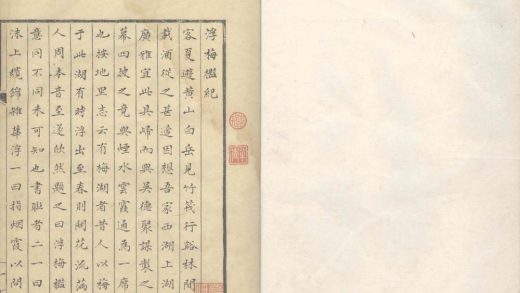 浮梅檻紀
客夏遊黃山白岳見竹筏行谿林間
載酒從之甚適因想吾家西湖上湖
廣雅宜此具歸而與吳德聚謀製之
幕四披之竟與煙水雲霞通為一席
也按地里志云有梅湖者昔人以梅
于此湖有時浮出至春則開花流滿
人周本音至遂欣然題之曰浮梅檻
意同不同未可知也書聯者二一曰
沫上纜錦雜華浮一曰指烟霞以問